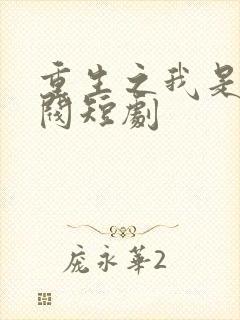 重生之我是
閥短劇
庞永華2